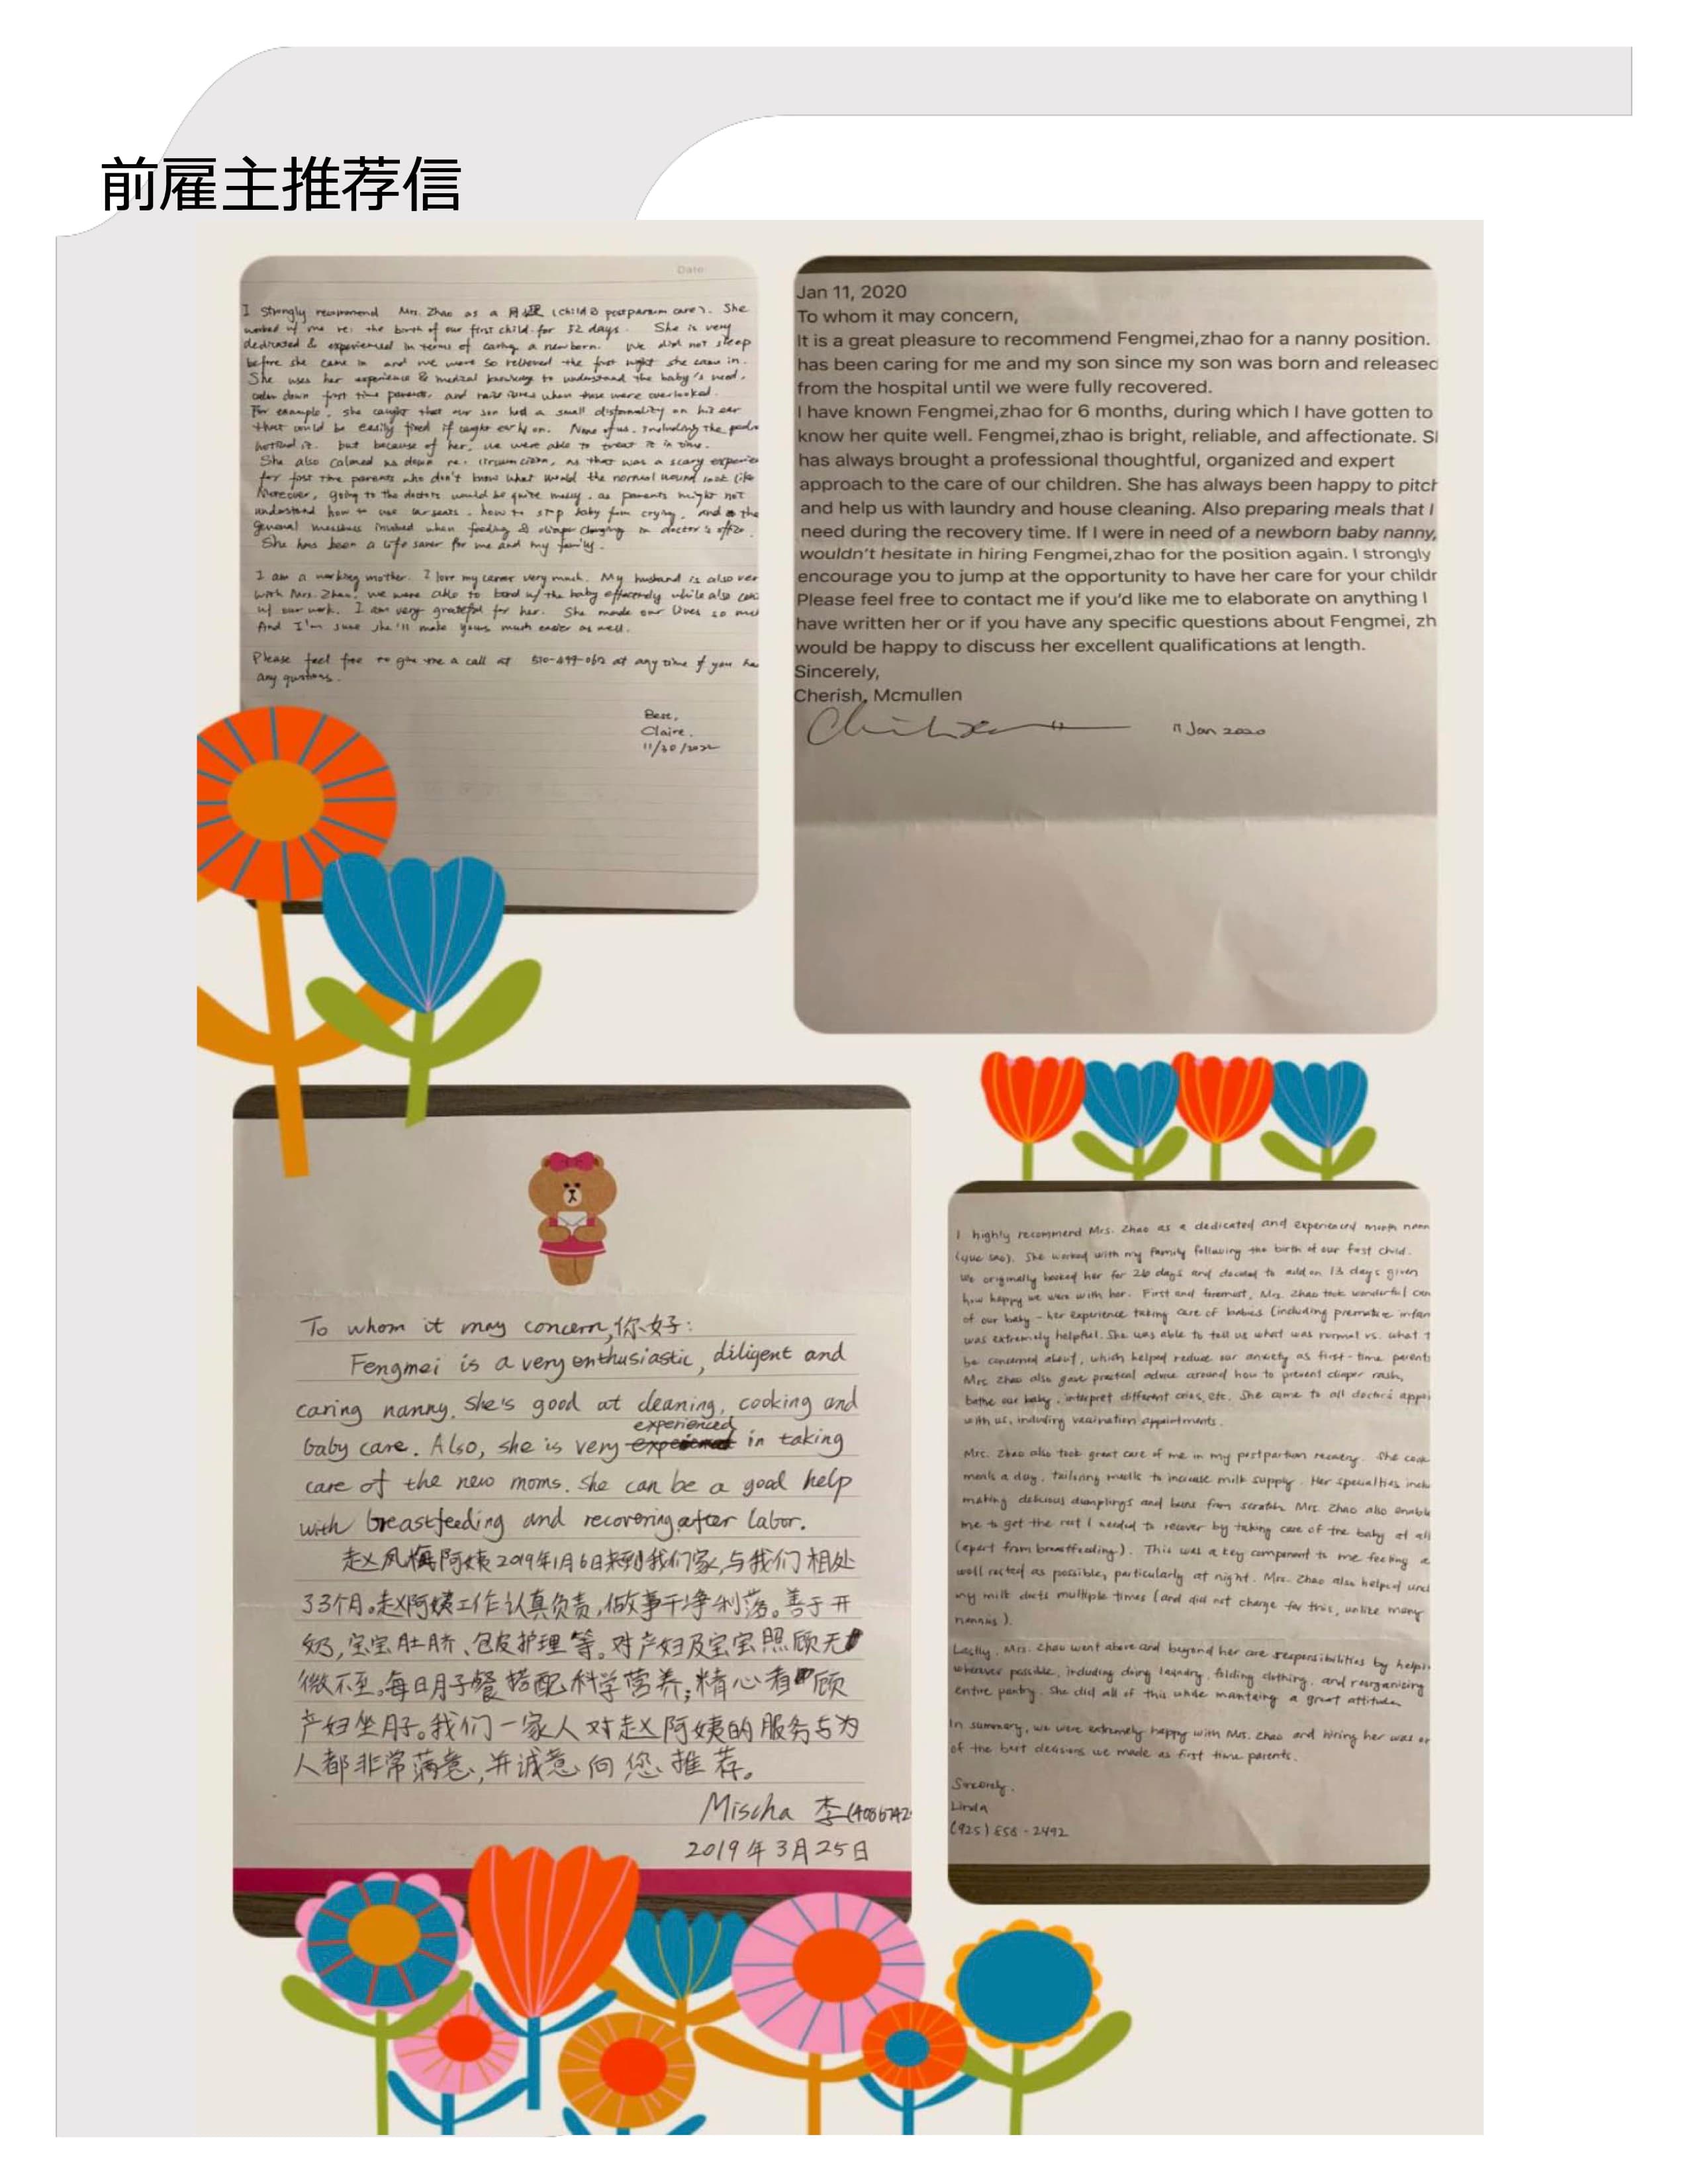 前雇主推荐信
Date
I strongly recommend Mrs. Zhao as a 月嫂 (child & postpartum care). She
worked w/ me re: the birth of our first child for 32 days. She is very
dedicated & experienced in terms of caring a newborn. We did not sleep
before she came in and we were so relieved the first night she came in.
She uses her experience & medical knowledge to understand the baby's need,
calm down first time parents, and raise issues when those were overlooked.
For example, she caught that our son had a small disformality on his ear
that could be easily fixed if caught early on. None of us, including the
noticed it. but because of her, we were able to treat it in time.
She also calmed us down re. as that was a scary
for first time parents who don't know what would the normal wound look like
Moreover, going to the doctors would be quite messy, as parents might not
understand how to use carseats, how to stop baby from crying, and the
general messiness involved when feeding & diaper changing in doctor's office.
She has been a life saver for me and my family.
I am a working mother. I love my career very much. My husband is also
With Mrs. Zhao, we were able to bond w/ the baby effectively while also
w/ our work. I am very grateful for her. She made our lives so
And I'm sure she'll make yours much easier as well.
Please feel free to give me a call at at any time if you
any questions.
Best,
Claire.
Jan 11, 2020
To whom it may concern,
It is a great pleasure to recommend Fengmei,zhao for a nanny position.
has been caring for me and my son since my son was born and released
from the hospital until we were fully recovered.
I have known Fengmei,zhao for 6 months, during which I have gotten to
know her quite well. Fengmei,zhao is bright, reliable, and affectionate.
has always brought a professional thoughtful, organized and expert
approach to the care of our children. She has always been happy to pitch
and help us with laundry and house cleaning. Also preparing meals that I
need during the recovery time. If I were in need of a newborn baby nanny,
wouldn't hesitate in hiring Fengmei,zhao for the position again. I strongly
encourage you to jump at the opportunity to have her care for your childr
Please feel free to contact me if you'd like me to elaborate on anything I
have written her or if you have any specific questions about Fengmei, zh
would be happy to discuss her excellent qualifications at length.
Sincerely,
Cherish, Mcmullen
11 Jan 2020
To whom it may concern, 你好:
Fengmei is a very enthusiastic, diligent and
caring nanny. She's good at cleaning, cooking and
baby care. Also, she is very experienced in taking
care of the new moms. She can be a good help
with breastfeeding and recovering after labor.
赵凤梅阿姨2019年1月6日来到我们家,与我们相处
33个月。赵阿姨工作认真负责,做事干净利落。善于开
奶,宝宝肚脐、包皮护理等。对产妇及宝宝照顾无
微不至。每日月子餐搭配科学营养;精心看顾
产妇坐月子。我们一家人对赵阿姨的服务与为
人都非常满意,并诚意向您推荐。
Mischa 李
2019年3月25日
I highly recommend Mrs. Zhao as a dedicated and experienced month nann
(yue sao). She worked with my family following the birth of our first child.
We originally booked her for 26 days and decided to add on 13 days given
how happy we were with her. First and foremost, Mrs. Zhao took wonderful
of our baby - her experience taking care of babies (including premature infan
was extremely helpful. She was able to tell us what was normal vs. what
be concerned about, which helped reduce our anxiety as first-time parents
Mrs. Zhao also gave practical advice around how to prevent diaper rash,
bathe our baby, interpret different cries, etc. She came to all doctor's appoi
with us, including vaccination appointments.
Mrs. Zhao also took great care of me in my postpartum recovery. She cook
meals a day, tailoring meals to increase milk supply. Her specialties inclu
making delicious dumplings and buns from scratch. Mrs. Zhao also enable
me to get the rest I needed to recover by taking care of the baby at all
(apart from breastfeeding). This was a key component to me feeling a
well rested as possible, particularly at night. Mrs. Zhao also helped
my milk ducts multiple times (and did not charge for this, unlike many
nannies).
Lastly, Mrs. Zhao went above and beyond her care responsibilities by helpi
wherever possible, including doing laundry, folding clothing, and reorganizing
entire pantry. She did all of this while a great attitude.
In summary, we were extremely happy with Mrs. Zhao and hiring her was
of the best decisions we made as first time parents.
Sincerely,
Linda
(925) 858-2492